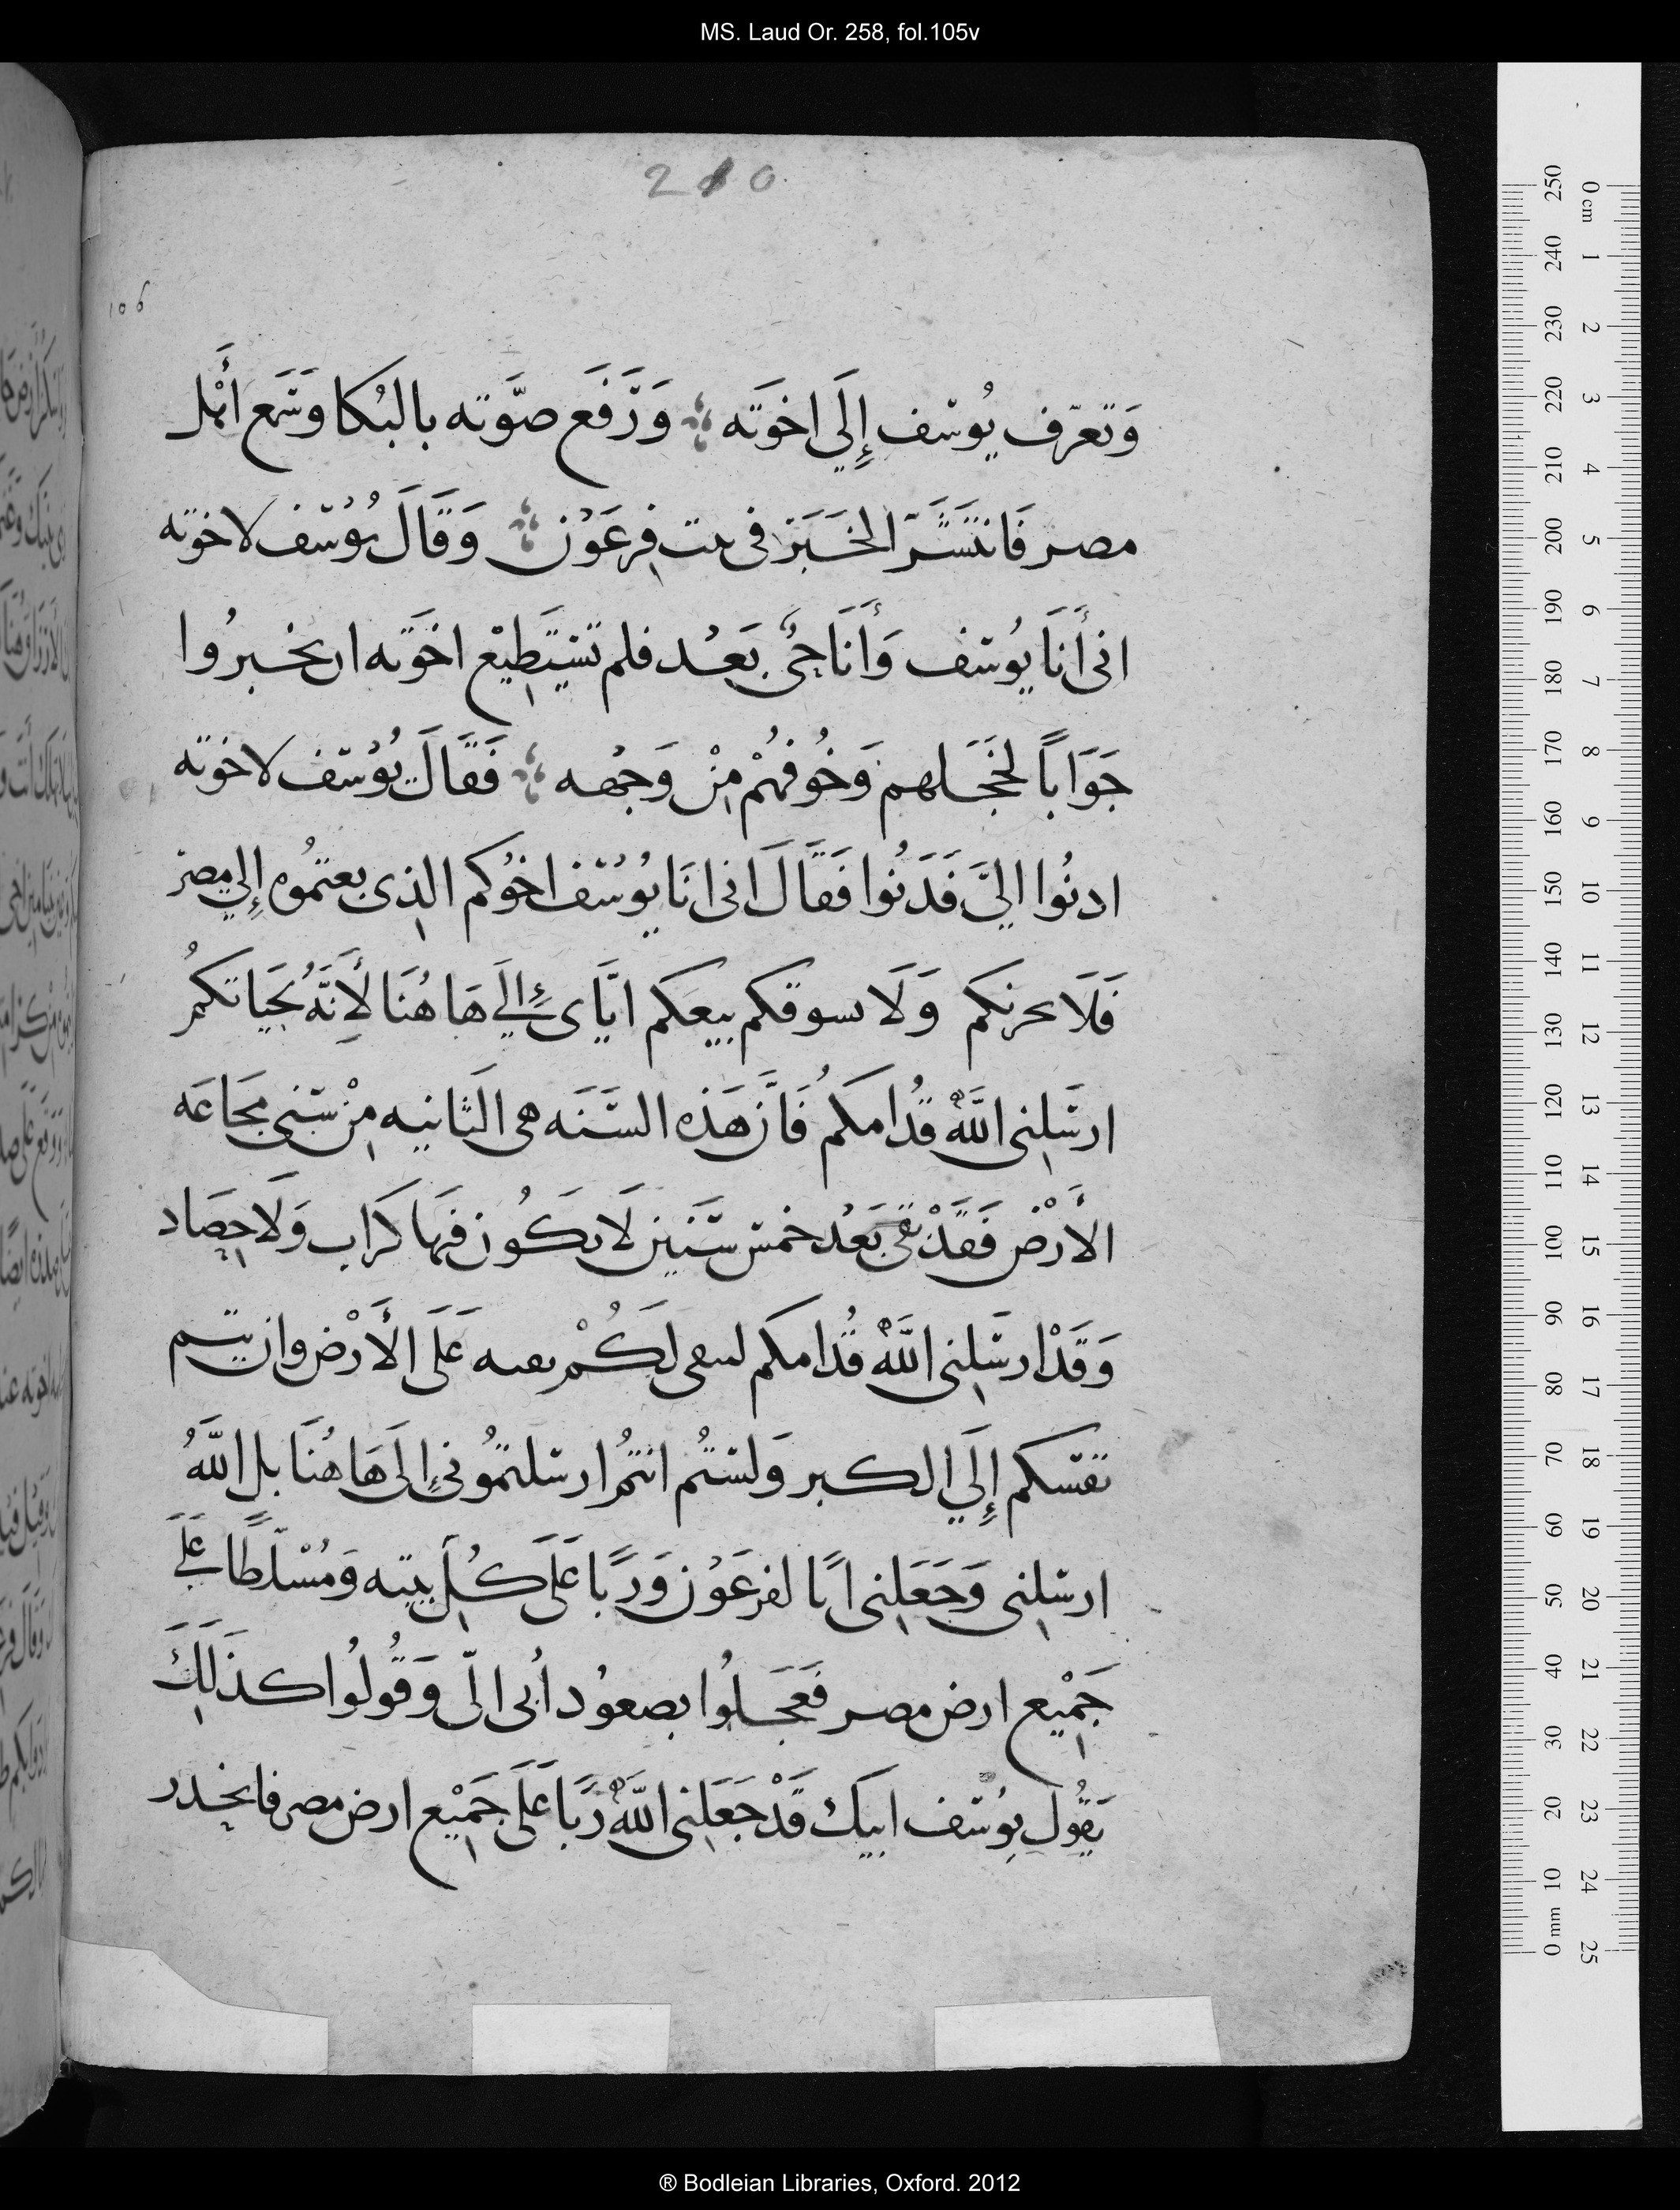 MS. Laud Or. 258, fol.105v
210
106
وَتعرّف يُوسف إِلَي اخوَته ؞ وَرَفَع صَوته بالبُكا وسَمع أَهل
مصر فَانتَشَر الخَبَر فى بيت فِرعَوْن ؞ وَقَالَ يُوسف لاخوته
انى أَنَا يُوسف وَأَنَا حىٌ بَعُد فلم تسَتَطِيْع اخوَته ان يخبرُوا
جَوَابًا لخجَلهم وَخُوفهُمْ مِنْ وَجْهه ؞ فَقَالَ يُوسف لاخوته
ادنُوا اليَّ فَدَنُوا فَقَالَ انى انَا يُوسُف اخُوكم الذِى بعتمُوه إِلي مصر
فَلَا يحزنكم وَلَا يسوقكم بيعَكم ايَّاى إِلَي هَاهُنَا لأِنَّهُ بحَيَاتكمُ
ارسَلِنى اللَّهُ قدُامكمُ فَاَن هَذه السَنَه هى الَثانيه مِنْ سنى مجَاعَه
الأَرْض فَقَدْ بقى بَعُد خمسَ سَنَين لَا يكُون فيهَا كَرَاب وَلَا حِصَاد
وَقَدْ ارسَلِنى اللَّهُ قُدامكم ليبقى لَكُمْ بقيه عَلَى الأَرْض وان يتسم
نفسكم إِلَي الكبير وَلستُم انتمُ ارسلتمُونىِ إِلَى هَاهُنَا بل اللَّهُ
ارسَلِنى وَجَعَلِنى ابًا لفرعَوْن وَرَبًا عَلَى كُلِ بيته وَمُسْلَطًا عَلَي
جَمِيْع ارض مصر فَعجَلوُا بصعوُد أبى الىّ وَقُولُوا كذَلِكَ
يَقُول يوُسف ابِيك قَدْ جَعَلِنى اللَّهُ رَبًا عَلَى جَمِيْع ارض مصر فانحدر
® Bodleian Libraries, Oxford. 2012